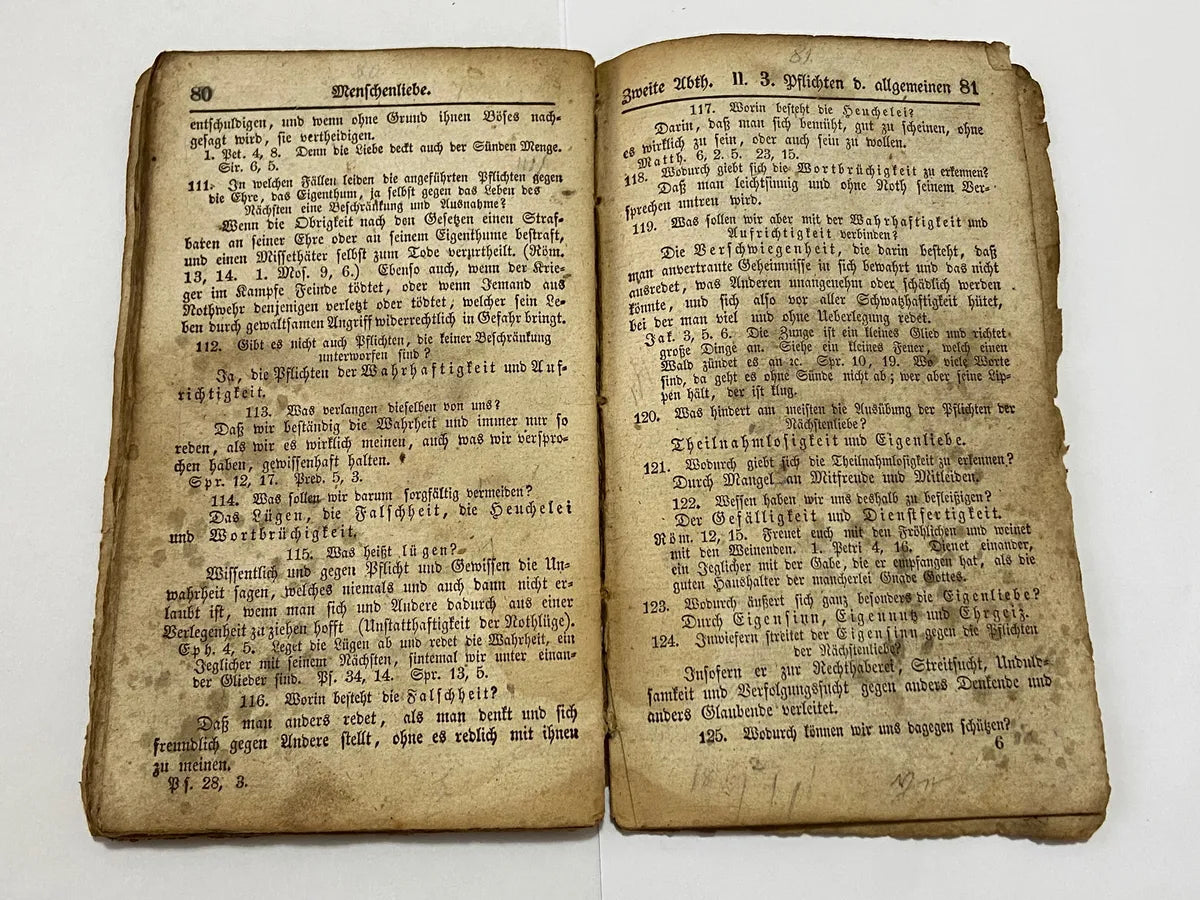 80 Menschenliebe.
entschuldigen, und wenn ohne Grund ihnen Böses nach-
gesagt wird, sie vertheidigen.
1. Pet. 4, 8. Denn die Liebe deckt auch der Sünden Menge.
Sir. 6, 5.
111. In welchen Fällen leiden die angeführten Pflichten gegen
die Ehre, das Eigenthum, ja selbst gegen das Leben des
Nächsten eine Beschränkung und Ausnahme?
Wenn die Obrigkeit nach den Gesetzen einen Straf-
baren an seiner Ehre oder an seinem Eigenthume bestraft,
und einen Missethäter selbst zum Tode verurtheilt. (Röm.
13, 14. 1. Mos. 9, 6.) Ebenso auch, wenn der Krie-
ger im Kampfe Feinde tödtet, oder wenn Jemand aus
Nothwehr denjenigen verletzt oder tödtet, welcher sein Le-
ben durch gewaltsamen Angriff widerrechtlich in Gefahr bringt.
112. Gibt es nicht auch Pflichten, die keiner Beschränkung
unterworfen sind?
Ja, die Pflichten der Wahrhaftigkeit und Auf-
richtigkeit.
113. Was verlangen dieselben von uns?
Daß wir beständig die Wahrheit und immer nur so
reden, als wir es wirklich meinen, auch was wir verspro-
chen haben, gewissenhaft halten.
Spr. 12, 17. Pred. 5, 3.
114. Was sollen wir darum sorgfältig vermeiden?
Das Lügen, die Falschheit, die Heuchelei
und Wortbrüchigkeit.
115. Was heißt lügen?
Wissentlich und gegen Pflicht und Gewissen die Un-
wahrheit sagen, welches niemals und auch dann nicht er-
laubt ist, wenn man sich und Andere dadurch aus einer
Verlegenheit zu ziehen hofft (Unstatthaftigkeit der Nothlüge).
Eph. 4, 5. Leget die Lügen ab und redet die Wahrheit, ein
Jeglicher mit seinem Nächsten, sintemal wir unter einan-
der Glieder sind. Ps. 34, 14. Spr. 13, 5.
116. Worin besteht die Falschheit?
Daß man anders redet, als man denkt und sich
freundlich gegen Andere stellt, ohne es redlich mit ihnen
zu meinen.
Ps. 28, 3.
81.
Zweite Abth. II. 3. Pflichten d. allgemeinen 81
117. Worin besteht die Heuchelei?
Darin, daß man sich bemüht, gut zu scheinen, ohne
es wirklich zu sein, oder auch sein zu wollen.
Matth. 6, 2. 5. 23, 15.
118. Wodurch giebt sich die Wortbrüchigkeit zu erkennen?
Daß man leichtsinnig und ohne Noth seinem Ver-
sprechen untreu wird.
119. Was sollen wir aber mit der Wahrhaftigkeit und
Aufrichtigkeit verbinden?
Die Verschwiegenheit, die darin besteht, daß
man anvertraute Geheimnisse in sich bewahrt und das nicht
ausredet, was Anderen unangenehm oder schädlich werden
könnte, und sich also vor aller Schwatzhaftigkeit hütet,
bei der man viel und ohne Ueberlegung redet.
Jak. 3, 5. 6. Die Zunge ist ein kleines Glied und richtet
große Dinge an. Siehe ein kleines Feuer, welch einen
Wald zündet es an ꝛc. Spr. 10, 19. Wo viele Worte
sind, da geht es ohne Sünde nicht ab; wer aber seine Lip-
pen hält, der ist klug.
120. Was hindert am meisten die Ausübung der Pflichten der
Nächstenliebe?
Theilnahmlosigkeit und Eigenliebe.
121. Wodurch giebt sich die Theilnahmlosigkeit zu erkennen?
Durch Mangel an Mitfreude und Mitleiden.
122. Wessen haben wir uns deshalb zu befleißigen?
Der Gefälligkeit und Dienstfertigkeit.
Röm. 12, 15. Freuet euch mit den Fröhlichen und weinet
mit den Weinenden. 1. Petri 4, 16. Dienet einander,
ein Jeglicher mit der Gabe, die er empfangen hat, als die
guten Haushalter der mancherlei Gnade Gottes.
123. Wodurch äußert sich ganz besonders die Eigenliebe?
Durch Eigensinn, Eigennutz und Ehrgeiz.
124. Inwiefern streitet der Eigensinn gegen die Pflichten
der Nächstenliebe?
Insofern er zur Rechthaberei, Streitsucht, Unduld-
samkeit und Verfolgungssucht gegen anders Denkende und
anders Glaubende verleitet.
125. Wodurch können wir uns dagegen schützen?
6